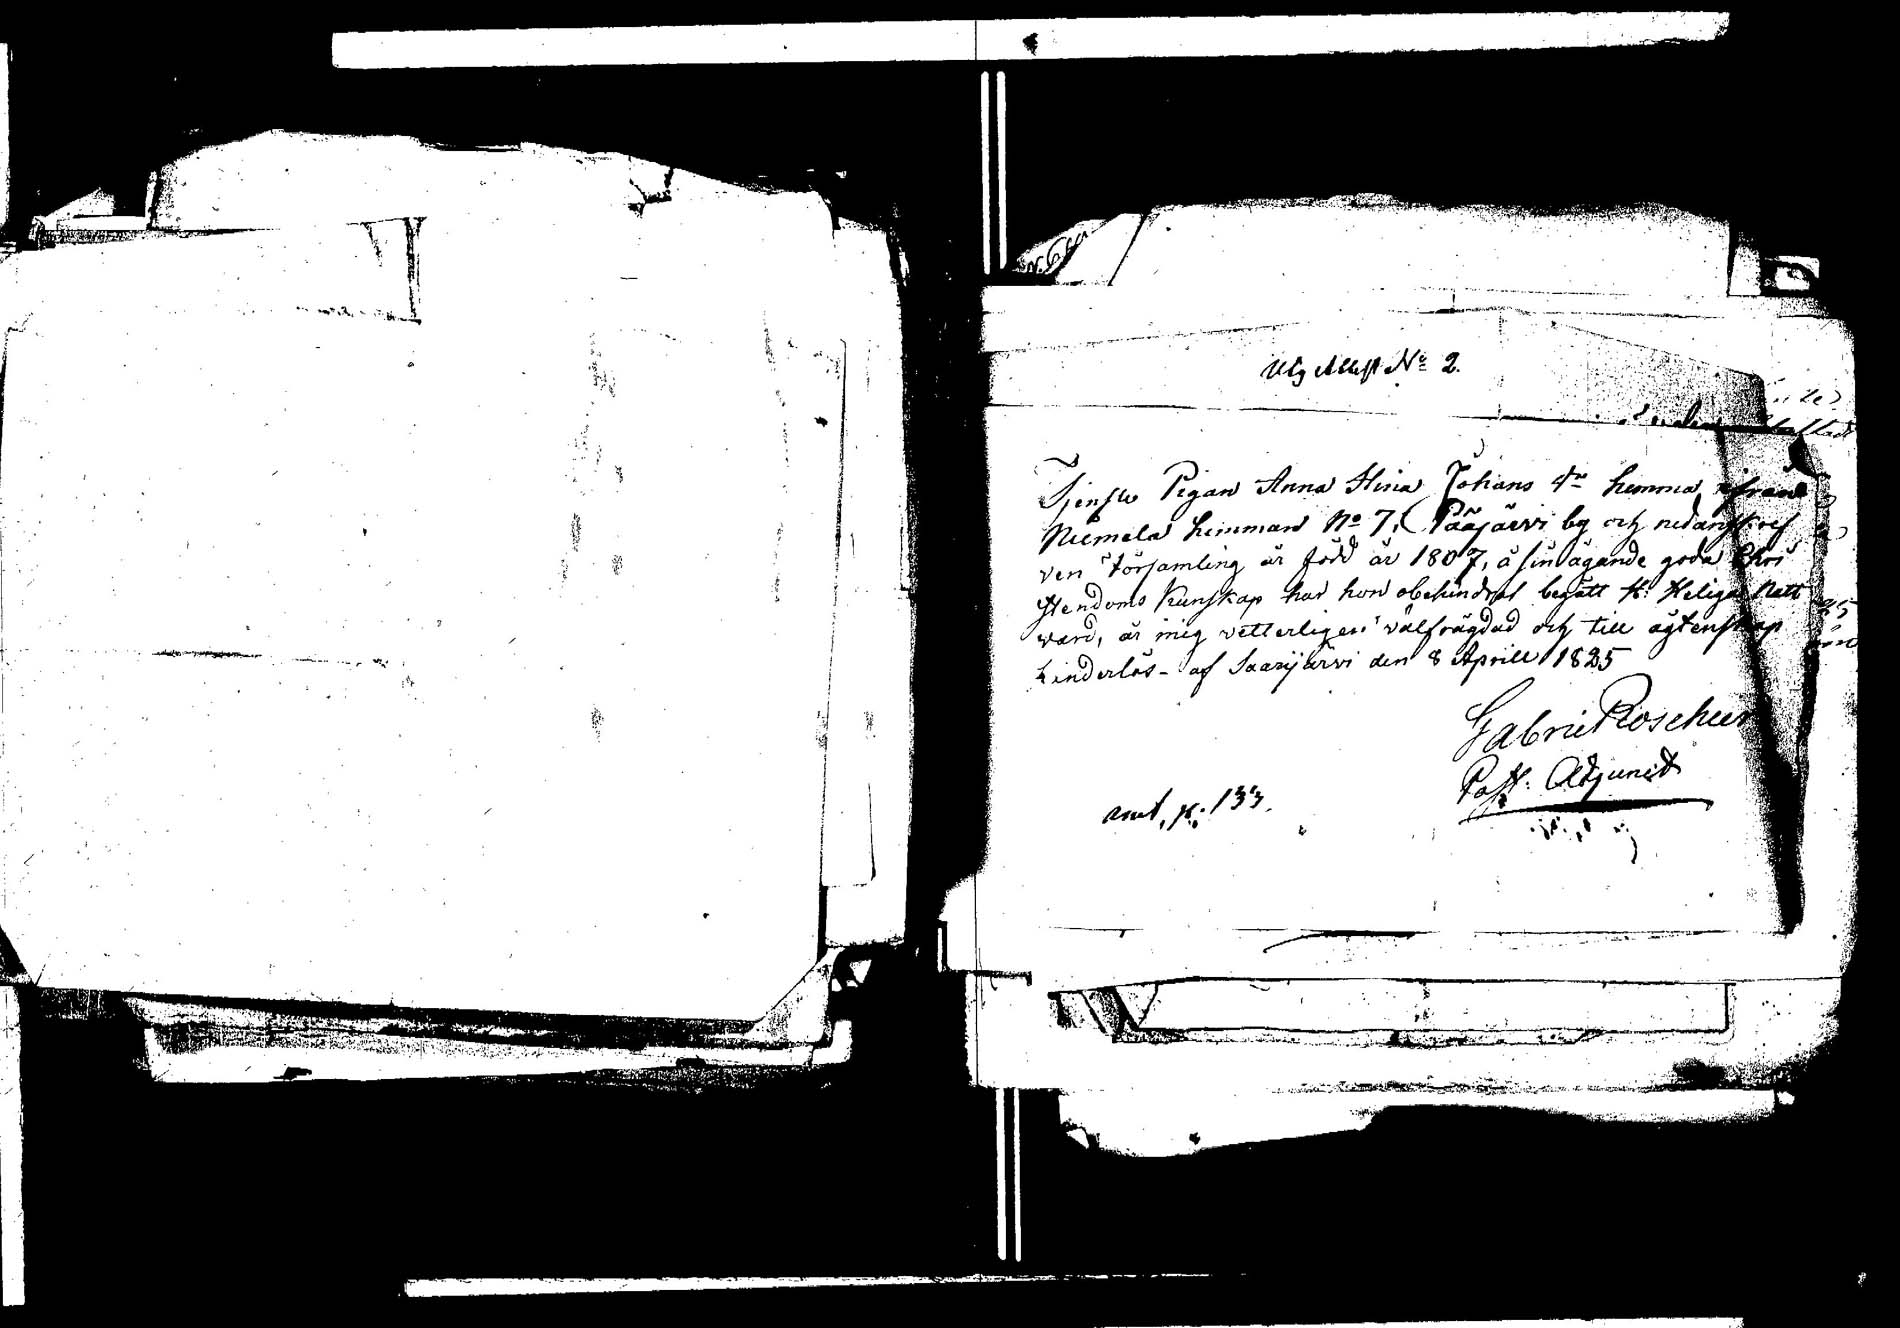 Utg Attest No 2.
Tjenste Pigan Anna Stina Johans dr hemma ifrån
Niemelä hemman No 7, Pääjärvi by och nedanskref
ven Församling är född år 1807, å sin ägande goda Chri
stendoms Kunskap har hon obehindrat begått H: Heliga Natt
vard, är mig vetterligen välfrägdad och till ägtenskap
hinderlös - af Saarijärvi den 8 Aprill 1835
Gabriel Roschier
Past: Adjunct